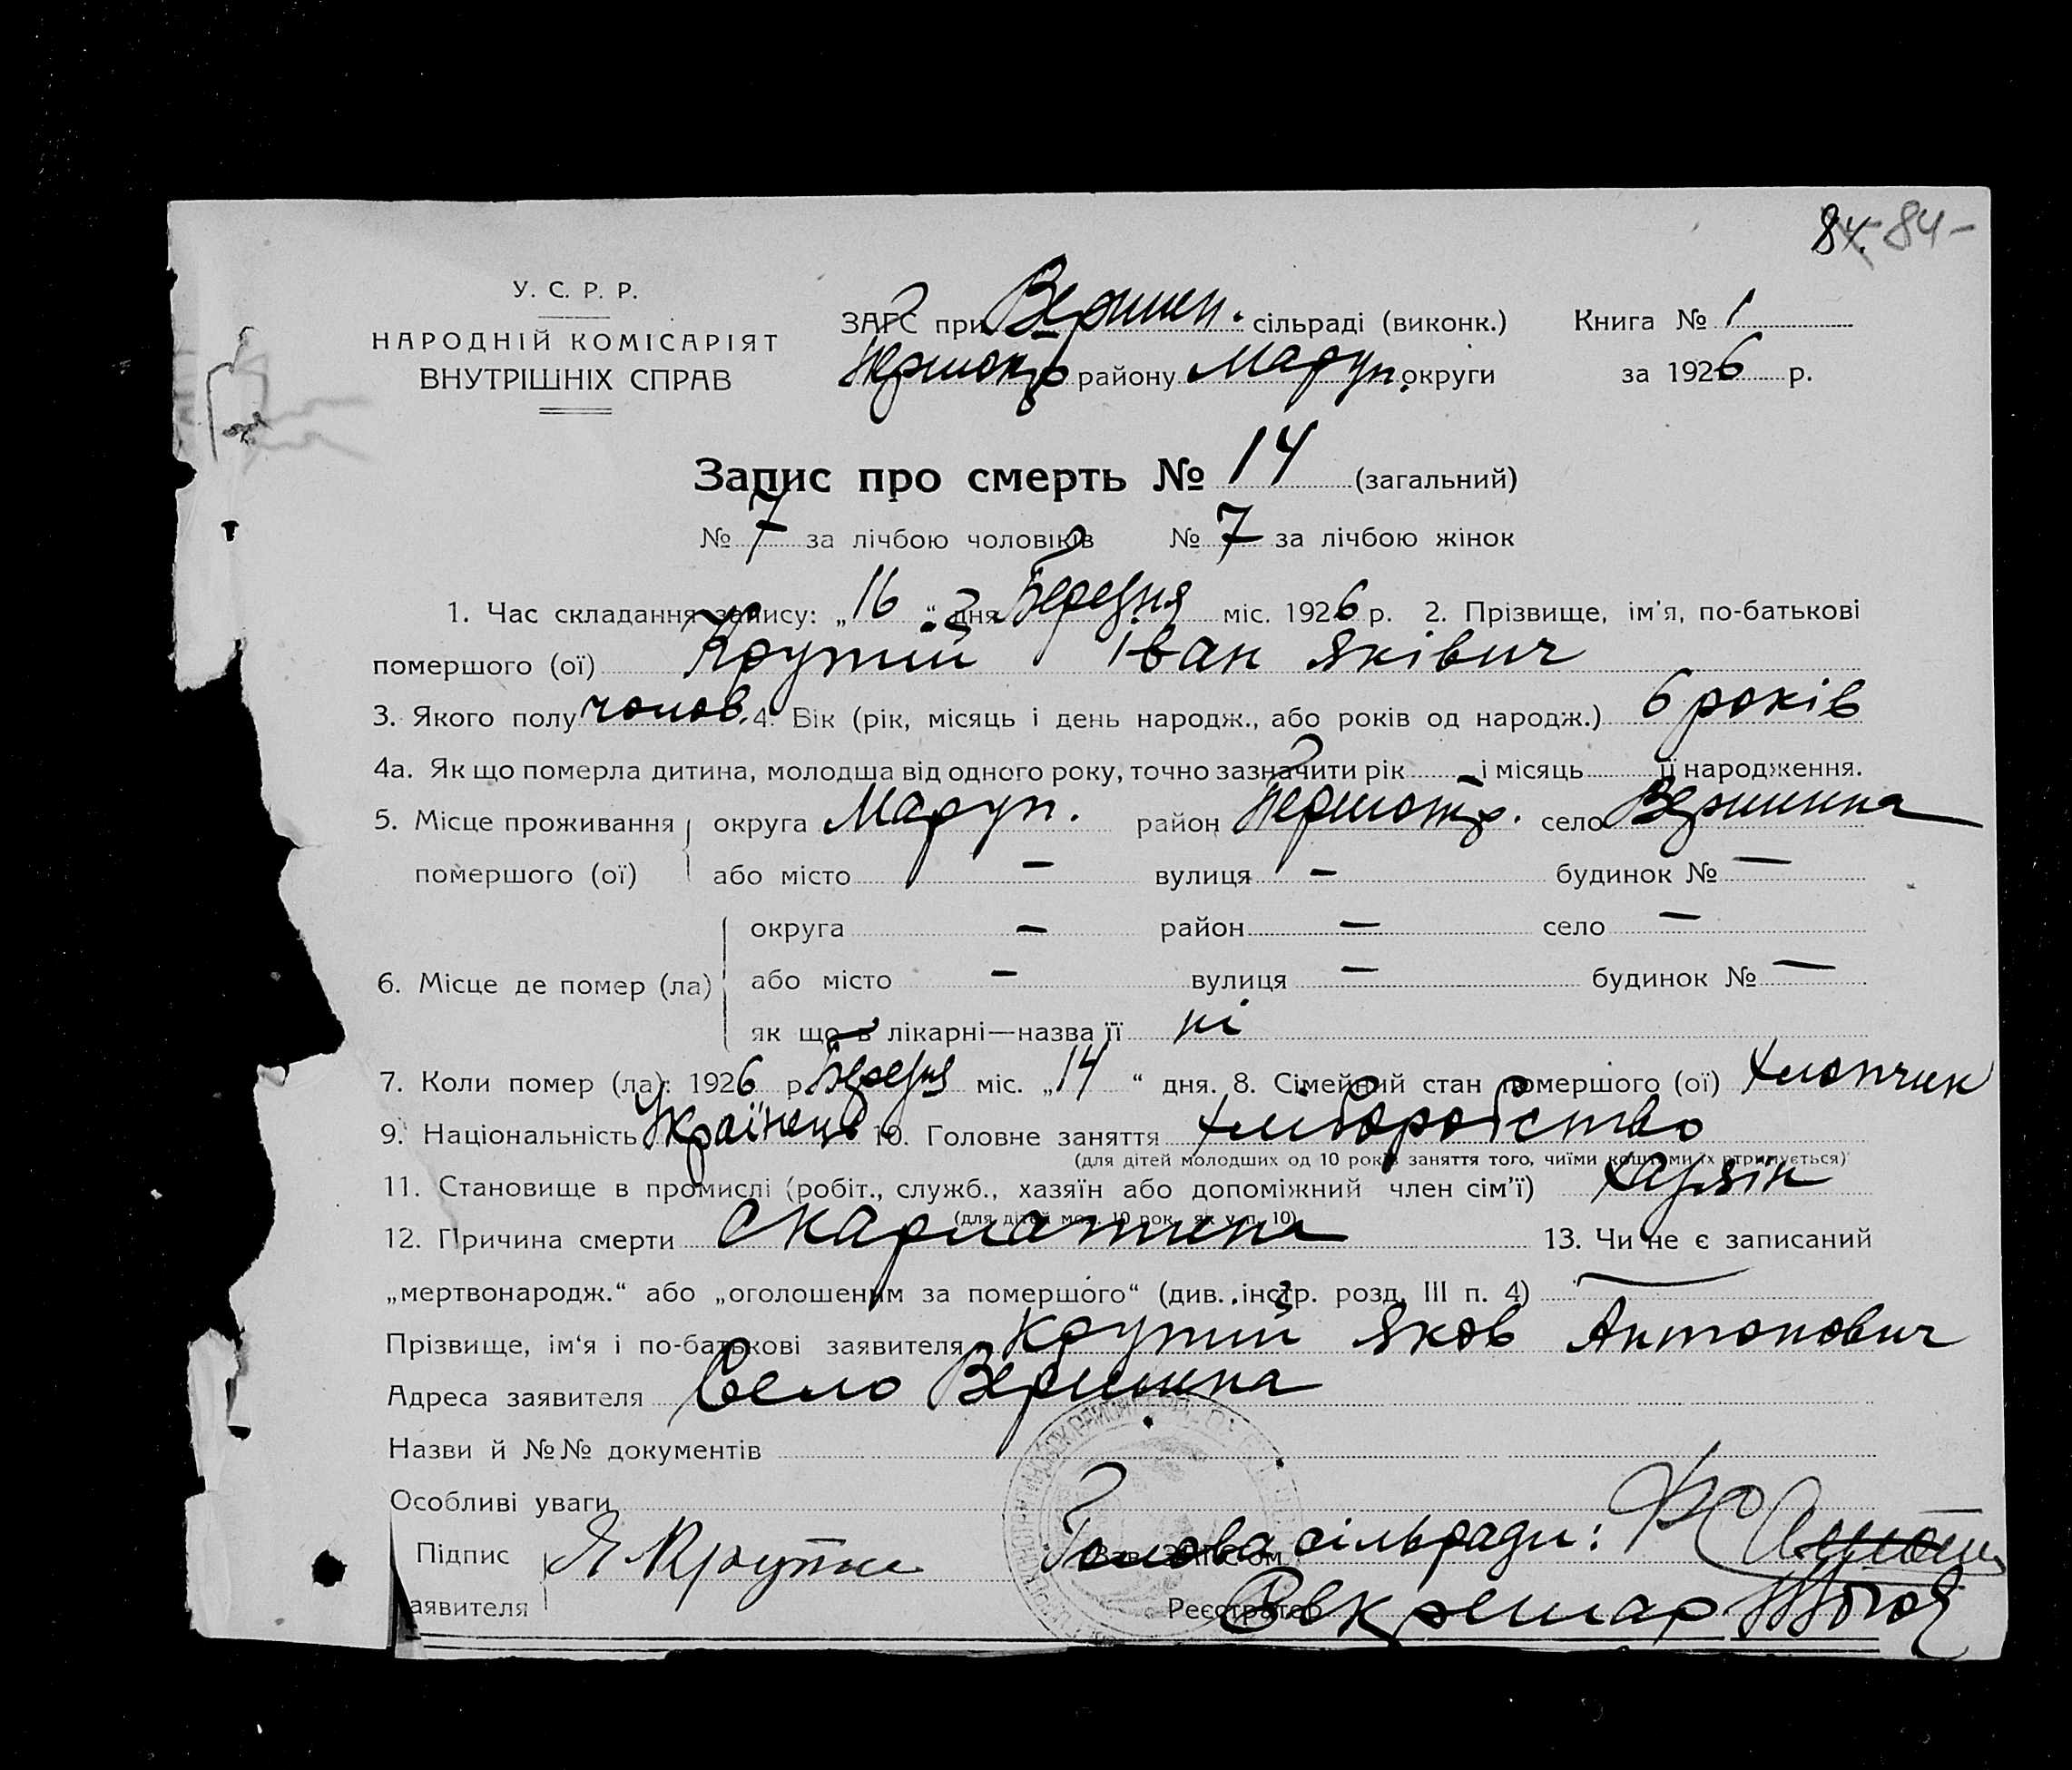 84. 84-
У. С. Р. Р.
НАРОДНІЙ КОМІСАРІЯТ
ВНУТРІШНІХ СПРАВ
ЗАГС при Вершин. сільраді (виконк.)
Першотр району Маруп. округи
Книга № 1
за 1926 р.
Запис про смерть № 14 (загальний)
№ 7 за лічбою чоловіків № 7 за лічбою жінок
1. Час складання запису: „16“ дня Березня міс. 1926 р. 2. Прізвище, ім'я, по-батькові
помершого (ої) Крутій Іван Яківич
3. Якого полу чолов. 4. Вік (рік, місяць і день народж., або років од народж.) 6 років
4а. Як що померла дитина, молодша від одного року, точно зазначити рік — і місяць її народження.
5. Місце проживання округа Маруп. район Першотр. село Вершина
помершого (ої) або місто — вулиця — будинок № —
округа — район — село —
6. Місце де помер (ла) або місто — вулиця — будинок № —
як що в лікарні—назва її ні
7. Коли помер (ла): 1926 р. Березня міс. „14“ дня. 8. Сімейний стан помершого (ої) хлопчик
9. Національність Українець 10. Головне заняття хліборобство
(для дітей молодших од 10 років заняття того, чиїми коштами їх втримується)
11. Становище в промислі (робіт., служб., хазяїн або допоміжний член сім'ї) хазяїн
(для дітей мол. 10 рок. як у п. 10)
12. Причина смерти скарлатина 13. Чи не є записаний
„мертвонародж.“ або „оголошеним за помершого“ (див. інстр. розд. III п. 4) —
Прізвище, ім'я і по-батькові заявителя Крутій Яков Антонович
Адреса заявителя Село Вершина
Назви й №№ документів
Особливі уваги
Підпис Я Крутий Голова сільради:
аявителя Реєстратор Секретар